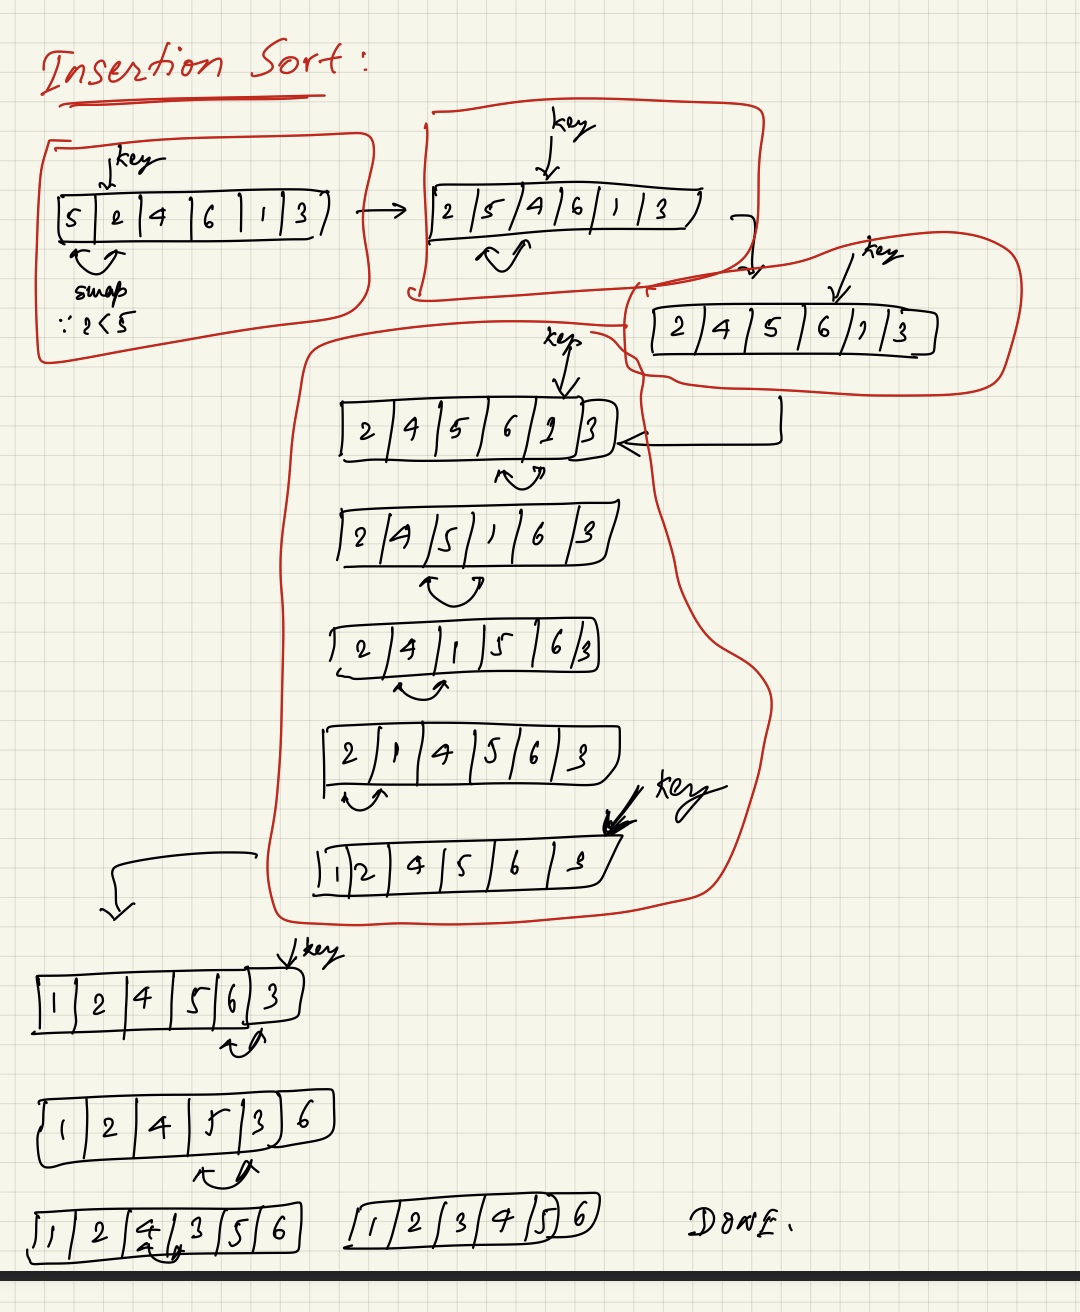 Insertion Sort:
key
5 2 4 6 1 3
swap
∵ 2 < 5
key
2 5 4 6 1 3
key
2 4 5 6 1 3
key
2 4 5 6 1 3
2 4 5 1 6 3
2 4 1 5 6 3
2 1 4 5 6 3
key
1 2 4 5 6 3
key
1 2 4 5 6 3
1 2 4 5 3 6
1 2 4 3 5 6
1 2 3 4 5 6
DONE.